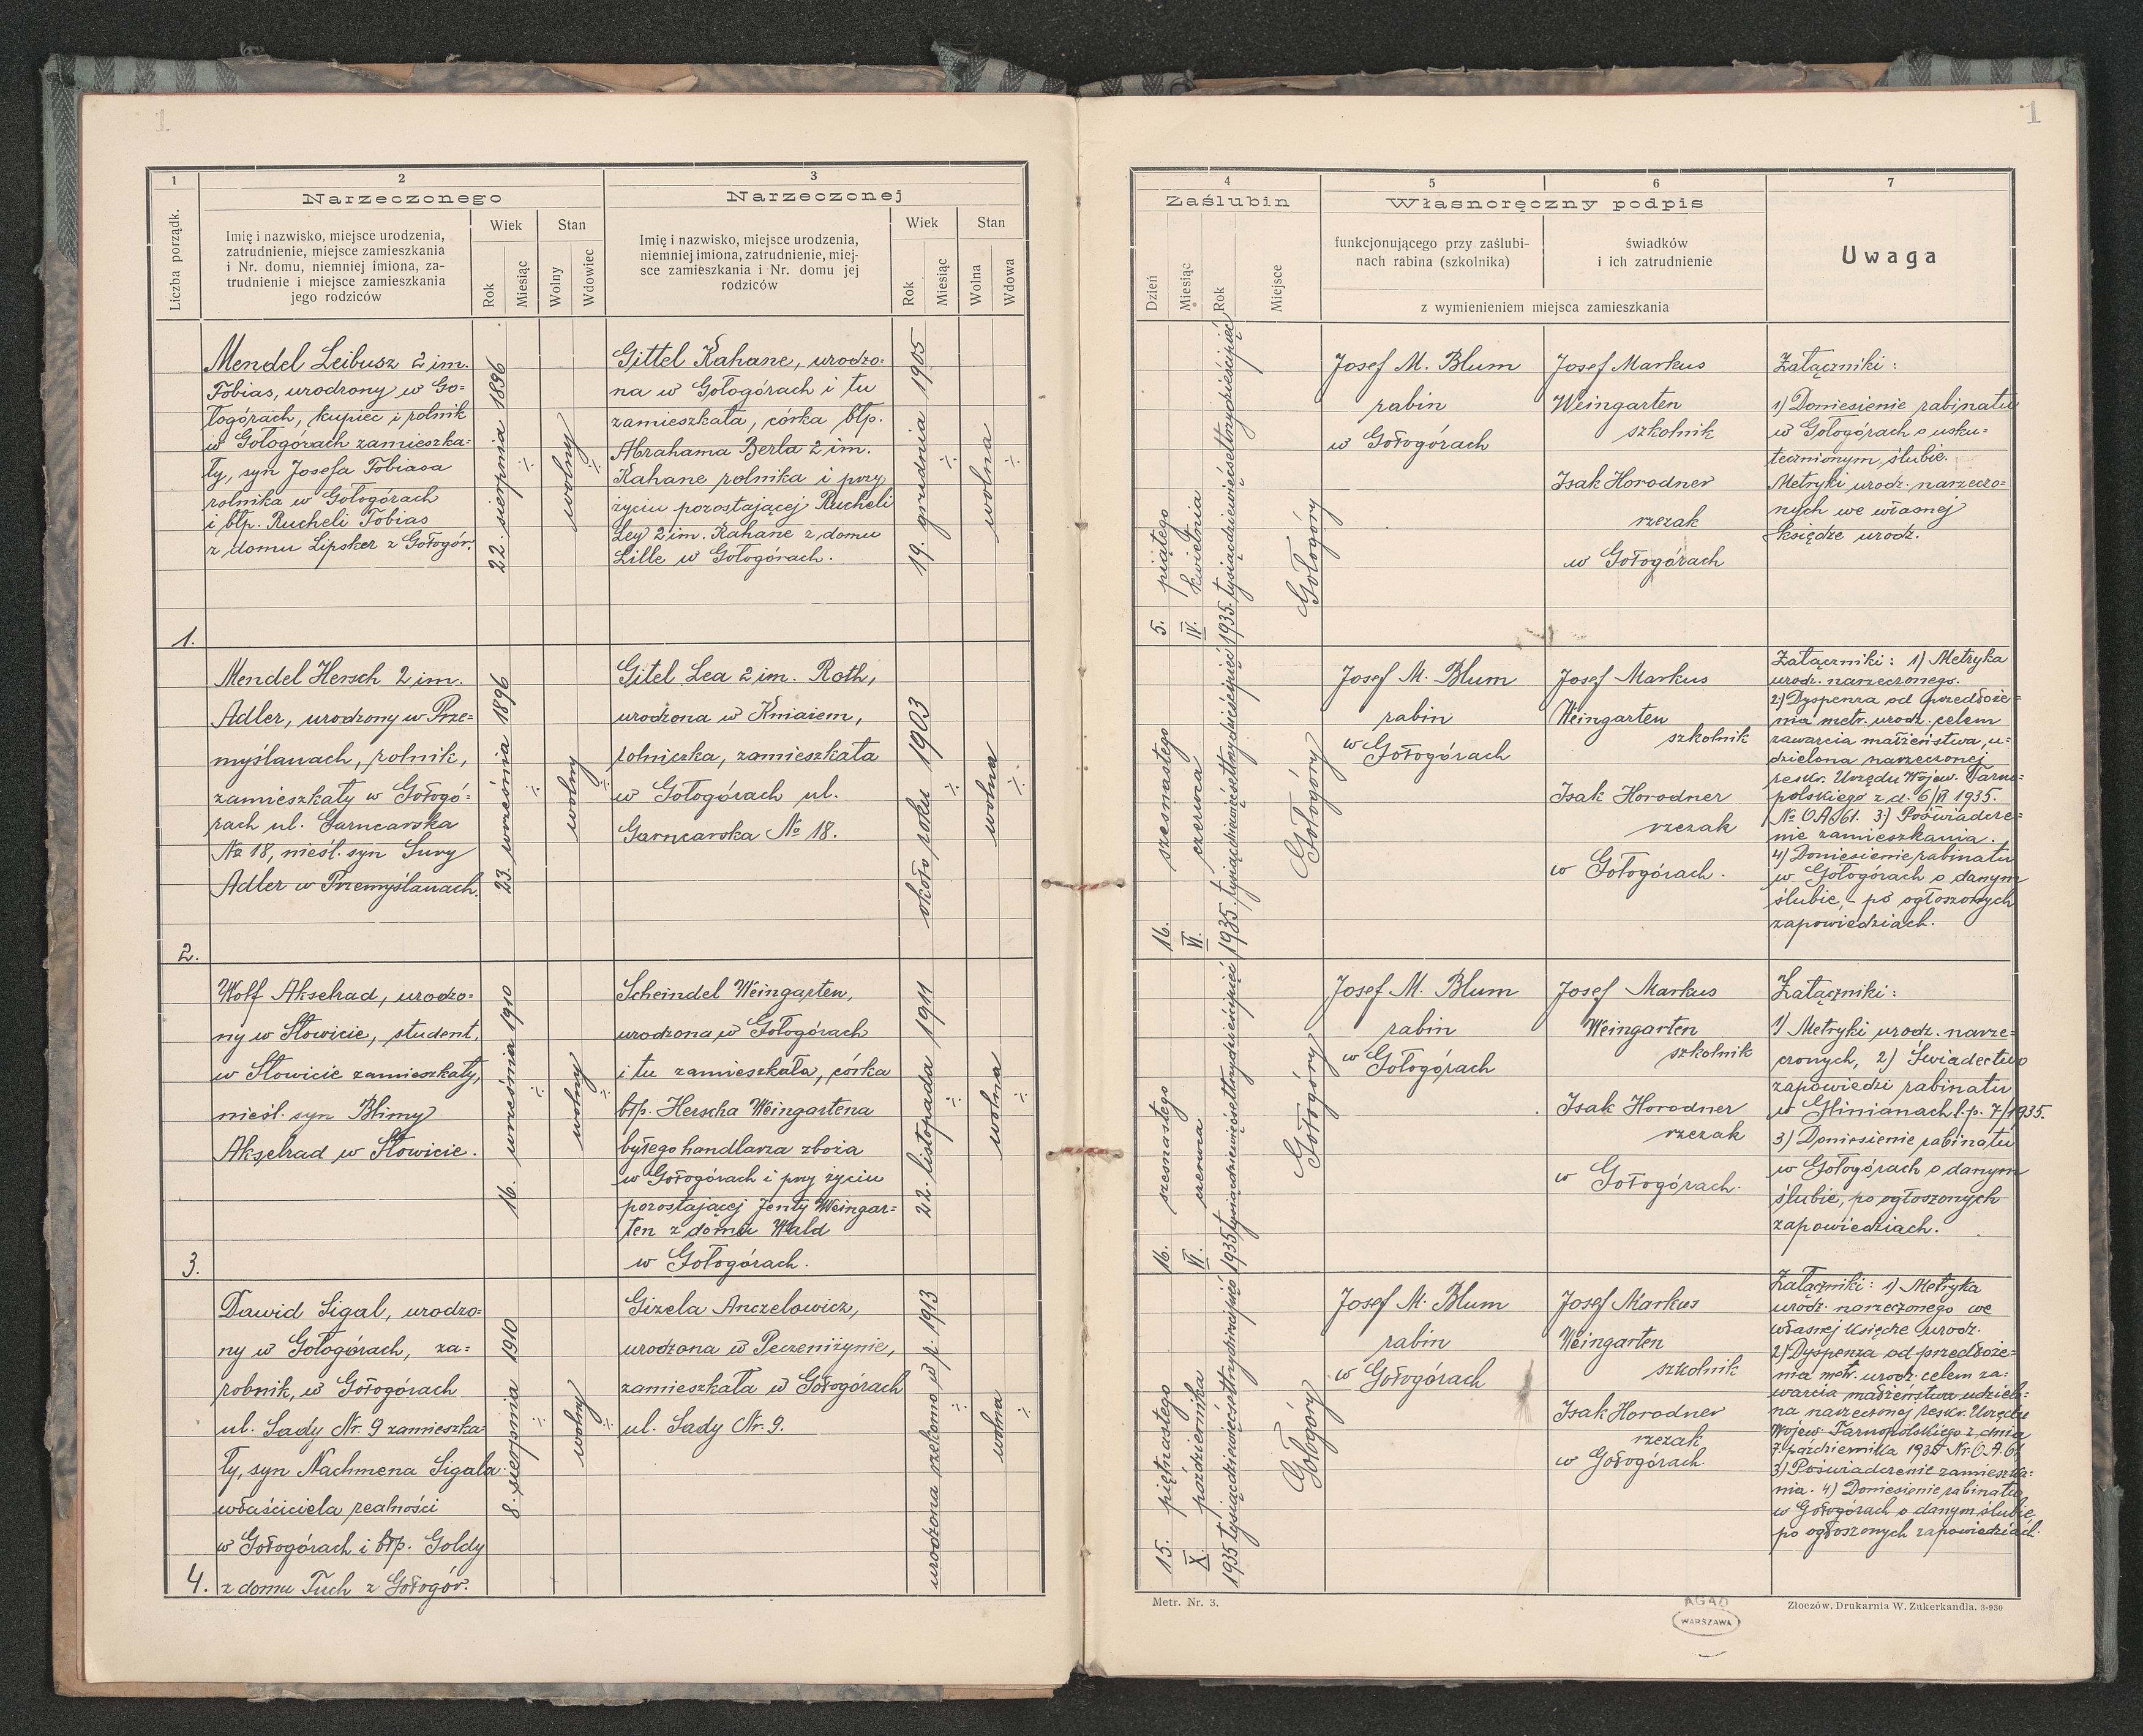 1
1
1
2
3
Narzeczonego
Narzeczonej
Liczba porządk.
Imię i nazwisko, miejsce urodzenia,
zatrudnienie, miejsce zamieszkania
i Nr. domu, niemniej imiona, za-
trudnienie i miejsce zamieszkania
jego rodziców
Wiek
Rok
Miesiąc
Stan
Wolny
Wdowiec
Imię i nazwisko, miejsce urodzenia,
niemniej imiona, zatrudnienie, miej-
sce zamieszkania i Nr. domu jej
rodziców
Wiek
Rok
Miesiąc
Stan
Wolna
Wdowa
4
5
6
7
Zaślubin
Własnoręczny podpis
Dzień
Miesiąc
Rok
Miejsce
funkcjonującego przy zaślubi-
nach rabina (szkolnika)
świadków
i ich zatrudnienie
z wymienieniem miejsca zamieszkania
Uwaga
1.
Mendel Leibusz 2 im.
Tobias, urodzony w Go=
łogórach, kupiec i rolnik
w Gołogórach zamieszka=
ły, syn Josefa Tobiasa
rolnika w Gołogórach
i błp. Rucheli Tobias
z domu Lipsker z Gołogór.
22. sierpnia 1896
wolny
Gittel Kahane, urodzo=
na w Gołogórach i tu
zamieszkała, córka błp.
Abrahama Berla 2 im.
Kahane rolnika i przy
życiu pozostającej Rucheli
Ley 2 im. Kahane z domu
Lille w Gołogórach.
19. grudnia 1905
wolna
5. piątego
IV. kwietnia
1935. tysiącdziewięćsettrzydzieścipięć
Gołogóry
Josef M. Blum
rabin
w Gołogórach
Josef Markus
Weingarten
szkolnik
Isak Horodner
rzezak
w Gołogórach
Załączniki:
1) Doniesienie rabinatu
w Gołogórach o usku=
tecznionym ślubie.
Metryki urodz. narzeczo=
nych we własnej
księdze urodz.
2.
Mendel Hersch 2 im.
Adler, urodzony w Prze=
myślanach, rolnik,
zamieszkały w Gołogó=
rach ul. Garncarska
№ 18, nieśl. syn Sury
Adler w Przemyślanach.
23. września 1896
wolny
Gitel Lea 2 im. Roth,
urodzona w Kniażem,
rolniczka, zamieszkała
w Gołogórach ul.
Garncarska № 18.
około roku 1903
wolna
16. szesnastego
VI. czerwca
1935. tysiącdziewięćsettrzydzieścipięć
Gołogóry
Josef M. Blum
rabin
w Gołogórach
Josef Markus
Weingarten
szkolnik
Isak Horodner
rzezak
w Gołogórach.
Załączniki: 1) Metryka
urodz. narzeczonego.
2) Dyspenza od przedłoże=
nia metr. urodz. celem
zawarcia małżeństwa, u=
dzielona narzeczonej
reskr. Urzędu Wojew. Tarno=
polskiego z d. 6/VI 1935.
№ OA/61. 3) Poświadcze=
nie zamieszkania.
4) Doniesienie rabinatu
w Gołogórach o danym
ślubie, po ogłoszonych
zapowiedziach.
3.
Wolf Akselrad, urodzo=
ny w Słowicie, student,
w Słowicie zamieszkały,
nieśl. syn Blimy
Akselrad w Słowicie.
16. września 1910
wolny
Scheindel Weingarten,
urodzona w Gołogórach
i tu zamieszkała, córka
błp. Herscha Weingartena
byłego handlarza zboża
w Gołogórach i przy życiu
pozostającej Jenty Weingar=
ten z domu Wald
w Gołogórach.
22. listopada 1911
wolna
16. szesnastego
VI. czerwca
1935 tysiącdziewięćsettrzydzieścipięć
Gołogóry
Josef M. Blum
rabin
w Gołogórach
Josef Markus
Weingarten
szkolnik
Isak Horodner
rzezak
w Gołogórach.
Załączniki:
1) Metryki urodz. narze=
czonych, 2) Świadectwo
zapowiedzi rabinatu
w Glinianach l.p. 7/1935.
3) Doniesienie rabinatu
w Gołogórach o danym
ślubie, po ogłoszonych
zapowiedziach.
4.
Dawid Sigal, urodzo=
ny w Gołogórach, za=
robnik, w Gołogórach
ul. Sady Nr. 9 zamieszka=
ły, syn Nachmena Sigala
właściciela realności
w Gołogórach i błp. Goldy
z domu Tuch z Gołogór.
8. sierpnia 1910
wolny
Gizela Anczelowicz,
urodzona w Peczeniżynie,
zamieszkała w Gołogórach
ul. Sady Nr. 9.
urodzona rzekomo w r. 1913
wolna
15. piętnastego
X. października
1935 tysiącdziewięćsettrzydzieścipięć
Gołogóry
Josef M. Blum
rabin
w Gołogórach
Josef Markus
Weingarten
szkolnik
Isak Horodner
rzezak
w Gołogórach.
Załączniki: 1) Metryka
urodz. narzeczonego we
własnej księdze urodz.
2) Dyspenza od przedłoże=
nia metr. urodz. celem za=
warcia małżeństwa udzielo=
na narzeczonej reskr. Urzędu
Wojew. Tarnopolskiego z dnia
7. października 1935 Nr. O.A. 61
3) Poświadczenie zamieszka=
nia. 4) Doniesienie rabinatu
w Gołogórach o danym ślubie,
po ogłoszonych zapowiedziach.
Metr. Nr. 3.
AGAD
WARSZAWA
Złoczów, Drukarnia W. Zukerkandla. 3-930